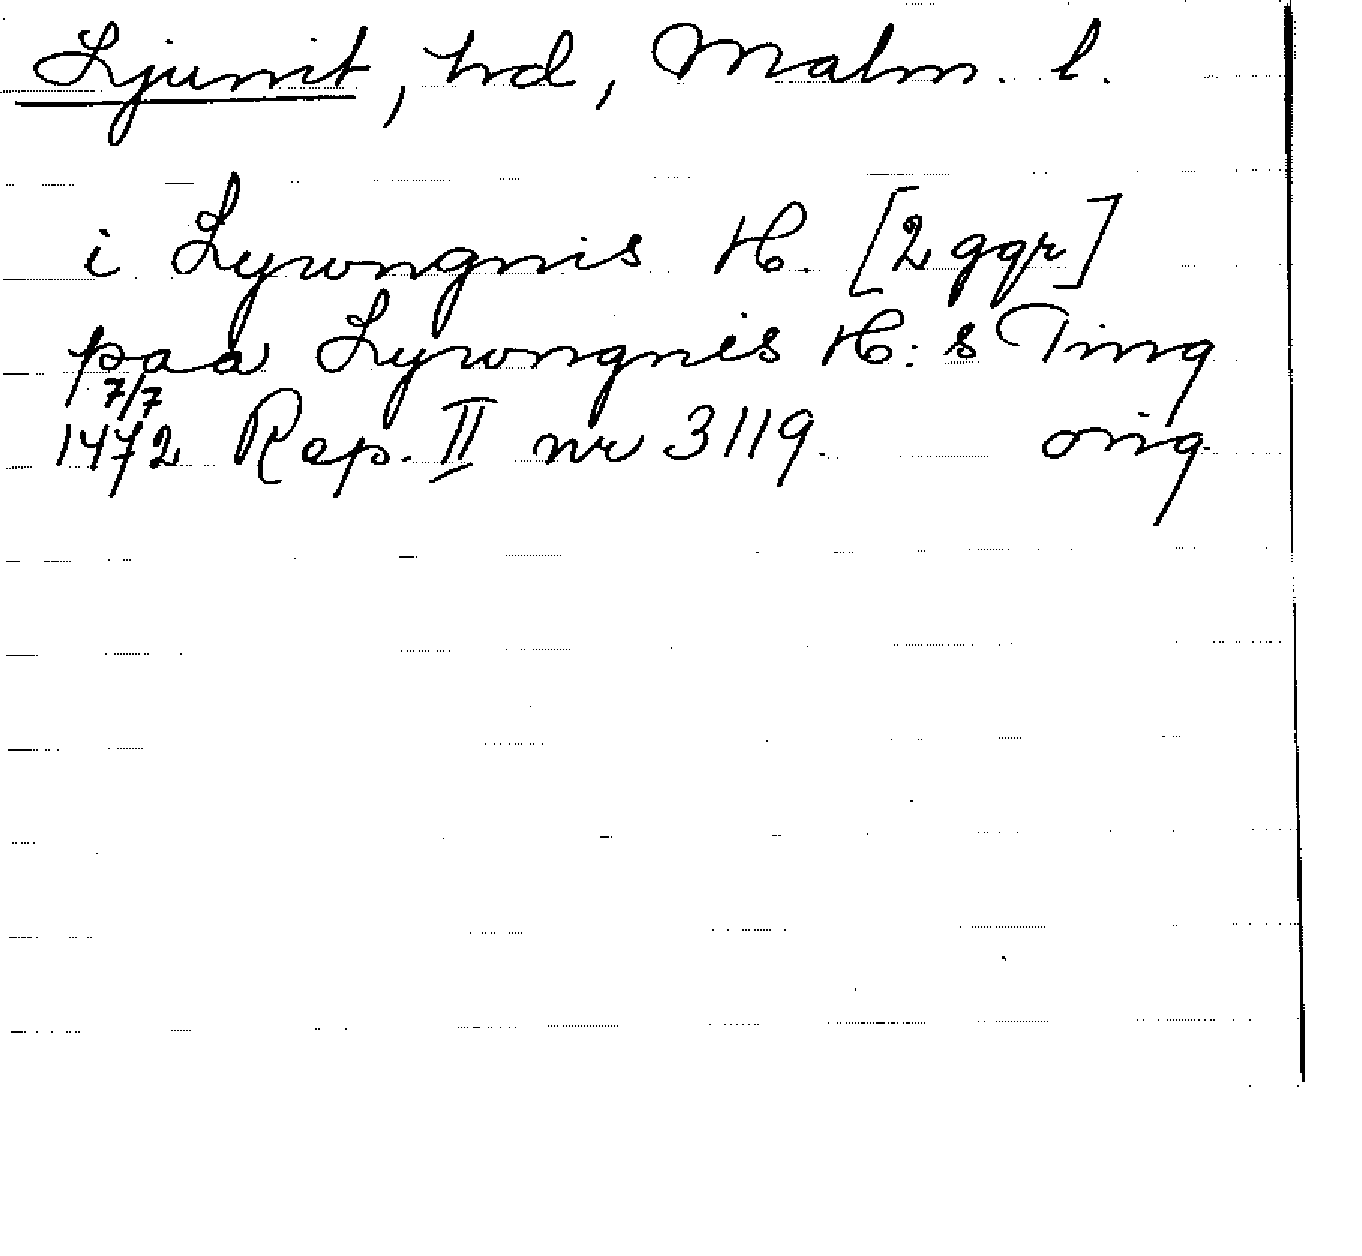 Ljunit, hd, Malm. l.
i Lywngnis H. [2 ggr]
paa Lywngnis H:s Ting
7/7
1472 Rep. II nr 3119. orig